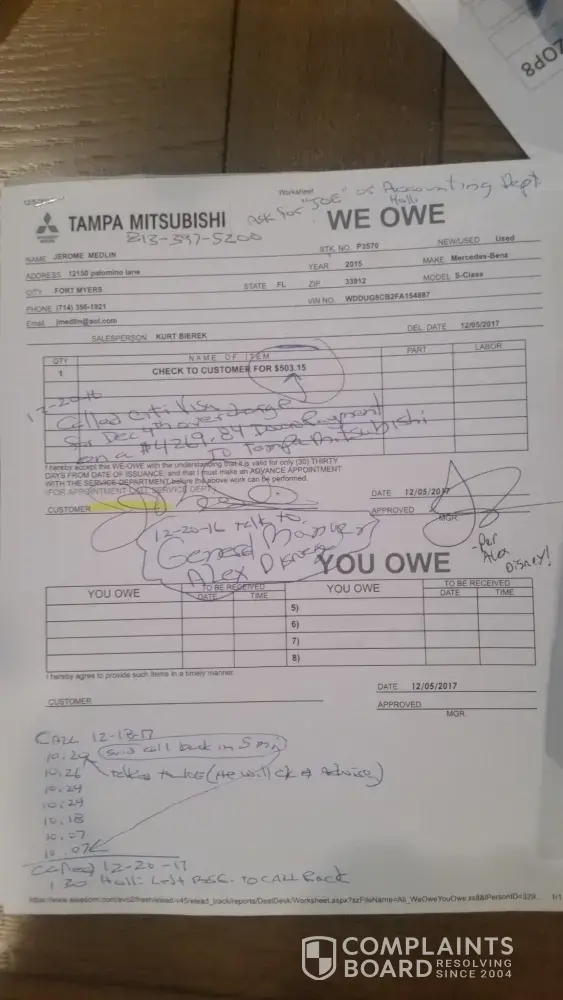 ZOP8
Worksheet
ask for "JOE" or Accounting Dept.
Halli
TAMPA MITSUBISHI
WE OWE
813-397-5200
STK. NO. P3570
NEW/USED Used
NAME JEROME MEDLIN
YEAR 2015
MAKE Mercedes-Benz
ADDRESS 12150 palomino lane
CITY FORT MYERS STATE FL ZIP 33912 MODEL S-Class
PHONE (714) 356-1921
VIN NO. WDDUG8CB2FA154887
Email jmedlin@aol.com
SALESPERSON KURT BIEREK
DEL. DATE 12/05/2017
QTY NAME OF ITEM PART LABOR
1 CHECK TO CUSTOMER FOR $503.15
12-20-16
Called Citi Visa
for Dec 4th overcharge
on a #4269.84 Down Payment
to Tampa Mitsubishi
I hereby accept this WE-OWE with the understanding that it is valid for only (30) THIRTY
DAYS FROM DATE OF ISSUANCE, and that I must make an ADVANCE APPOINTMENT
WITH THE SERVICE DEPARTMENT before the above work can be performed.
(FOR APPOINTMENT CALL SERVICE DEPT)
DATE 12/05/2017
CUSTOMER
APPROVED
MGR.
12-20-16 talk to
General Manager
Alex Disney
-Per
Alex
Disney!
YOU OWE
YOU OWE TO BE RECEIVED YOU OWE TO BE RECEIVED
DATE TIME DATE TIME
5)
6)
7)
8)
I hereby agrees to provide such items in a timely manner.
DATE 12/05/2017
CUSTOMER
APPROVED
MGR.
Call 12-18-17
10:29 said call back in 5 min
10:26 talked to JOE (He will ck & Advice)
10:24
10:24
10:18
10:07
10:07
Called 12-20-17
1:30 Halli Left Mess. TO CALL Back
1/1
COMPLAINTS
BOARD RESOLVING
SINCE 2004